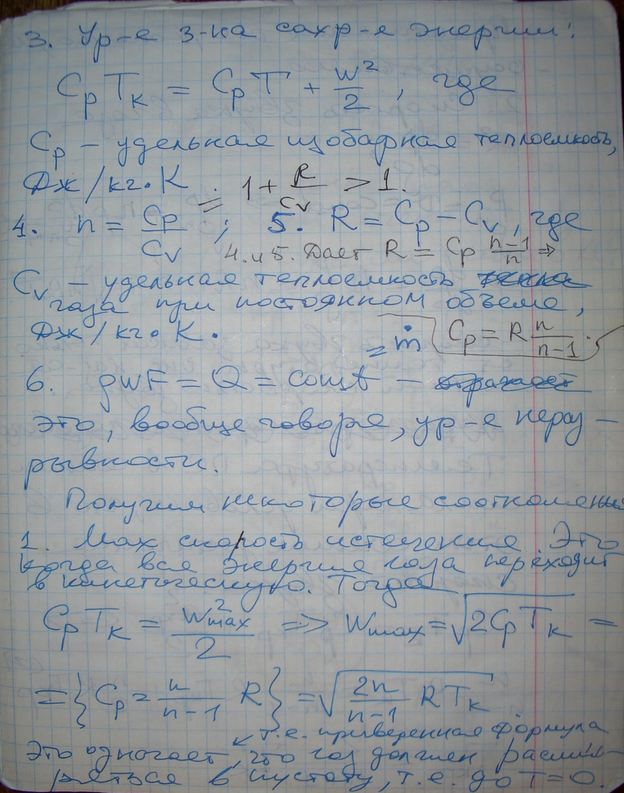 3. Ур-е з-на сохр-я энергии:
CpTк = CpT + w²/2, где
Cp – удельная изобарная теплоемкость,
Дж/кг·К.
= 1 + R/Cv > 1.
4. n = Cp/Cv ; 5. R = Cp – Cv, где
4. и 5. Дает R = Cp (n-1)/n ⇒
Cv – удельная теплоемкость
газа при постоянном объеме,
Дж/кг·К.
Cp = R n/(n-1).
= ṁ
6. ρwF = Q = const –
это, вообще говоря, ур-е нераз-
рывности.
Получим некоторые соотношения
1. Max скорость истечения. Это
когда вся энергия газа переходит
в кинетическую. Тогда
CpTк = w²max/2 => wmax = √(2CpTк) =
= {Cp = n/(n-1) R} = √(2n/(n-1) RTк)
т.е. приведенная формула
Это означает, что газ должен расши-
ряться в пустоту, т.е. до T=0.